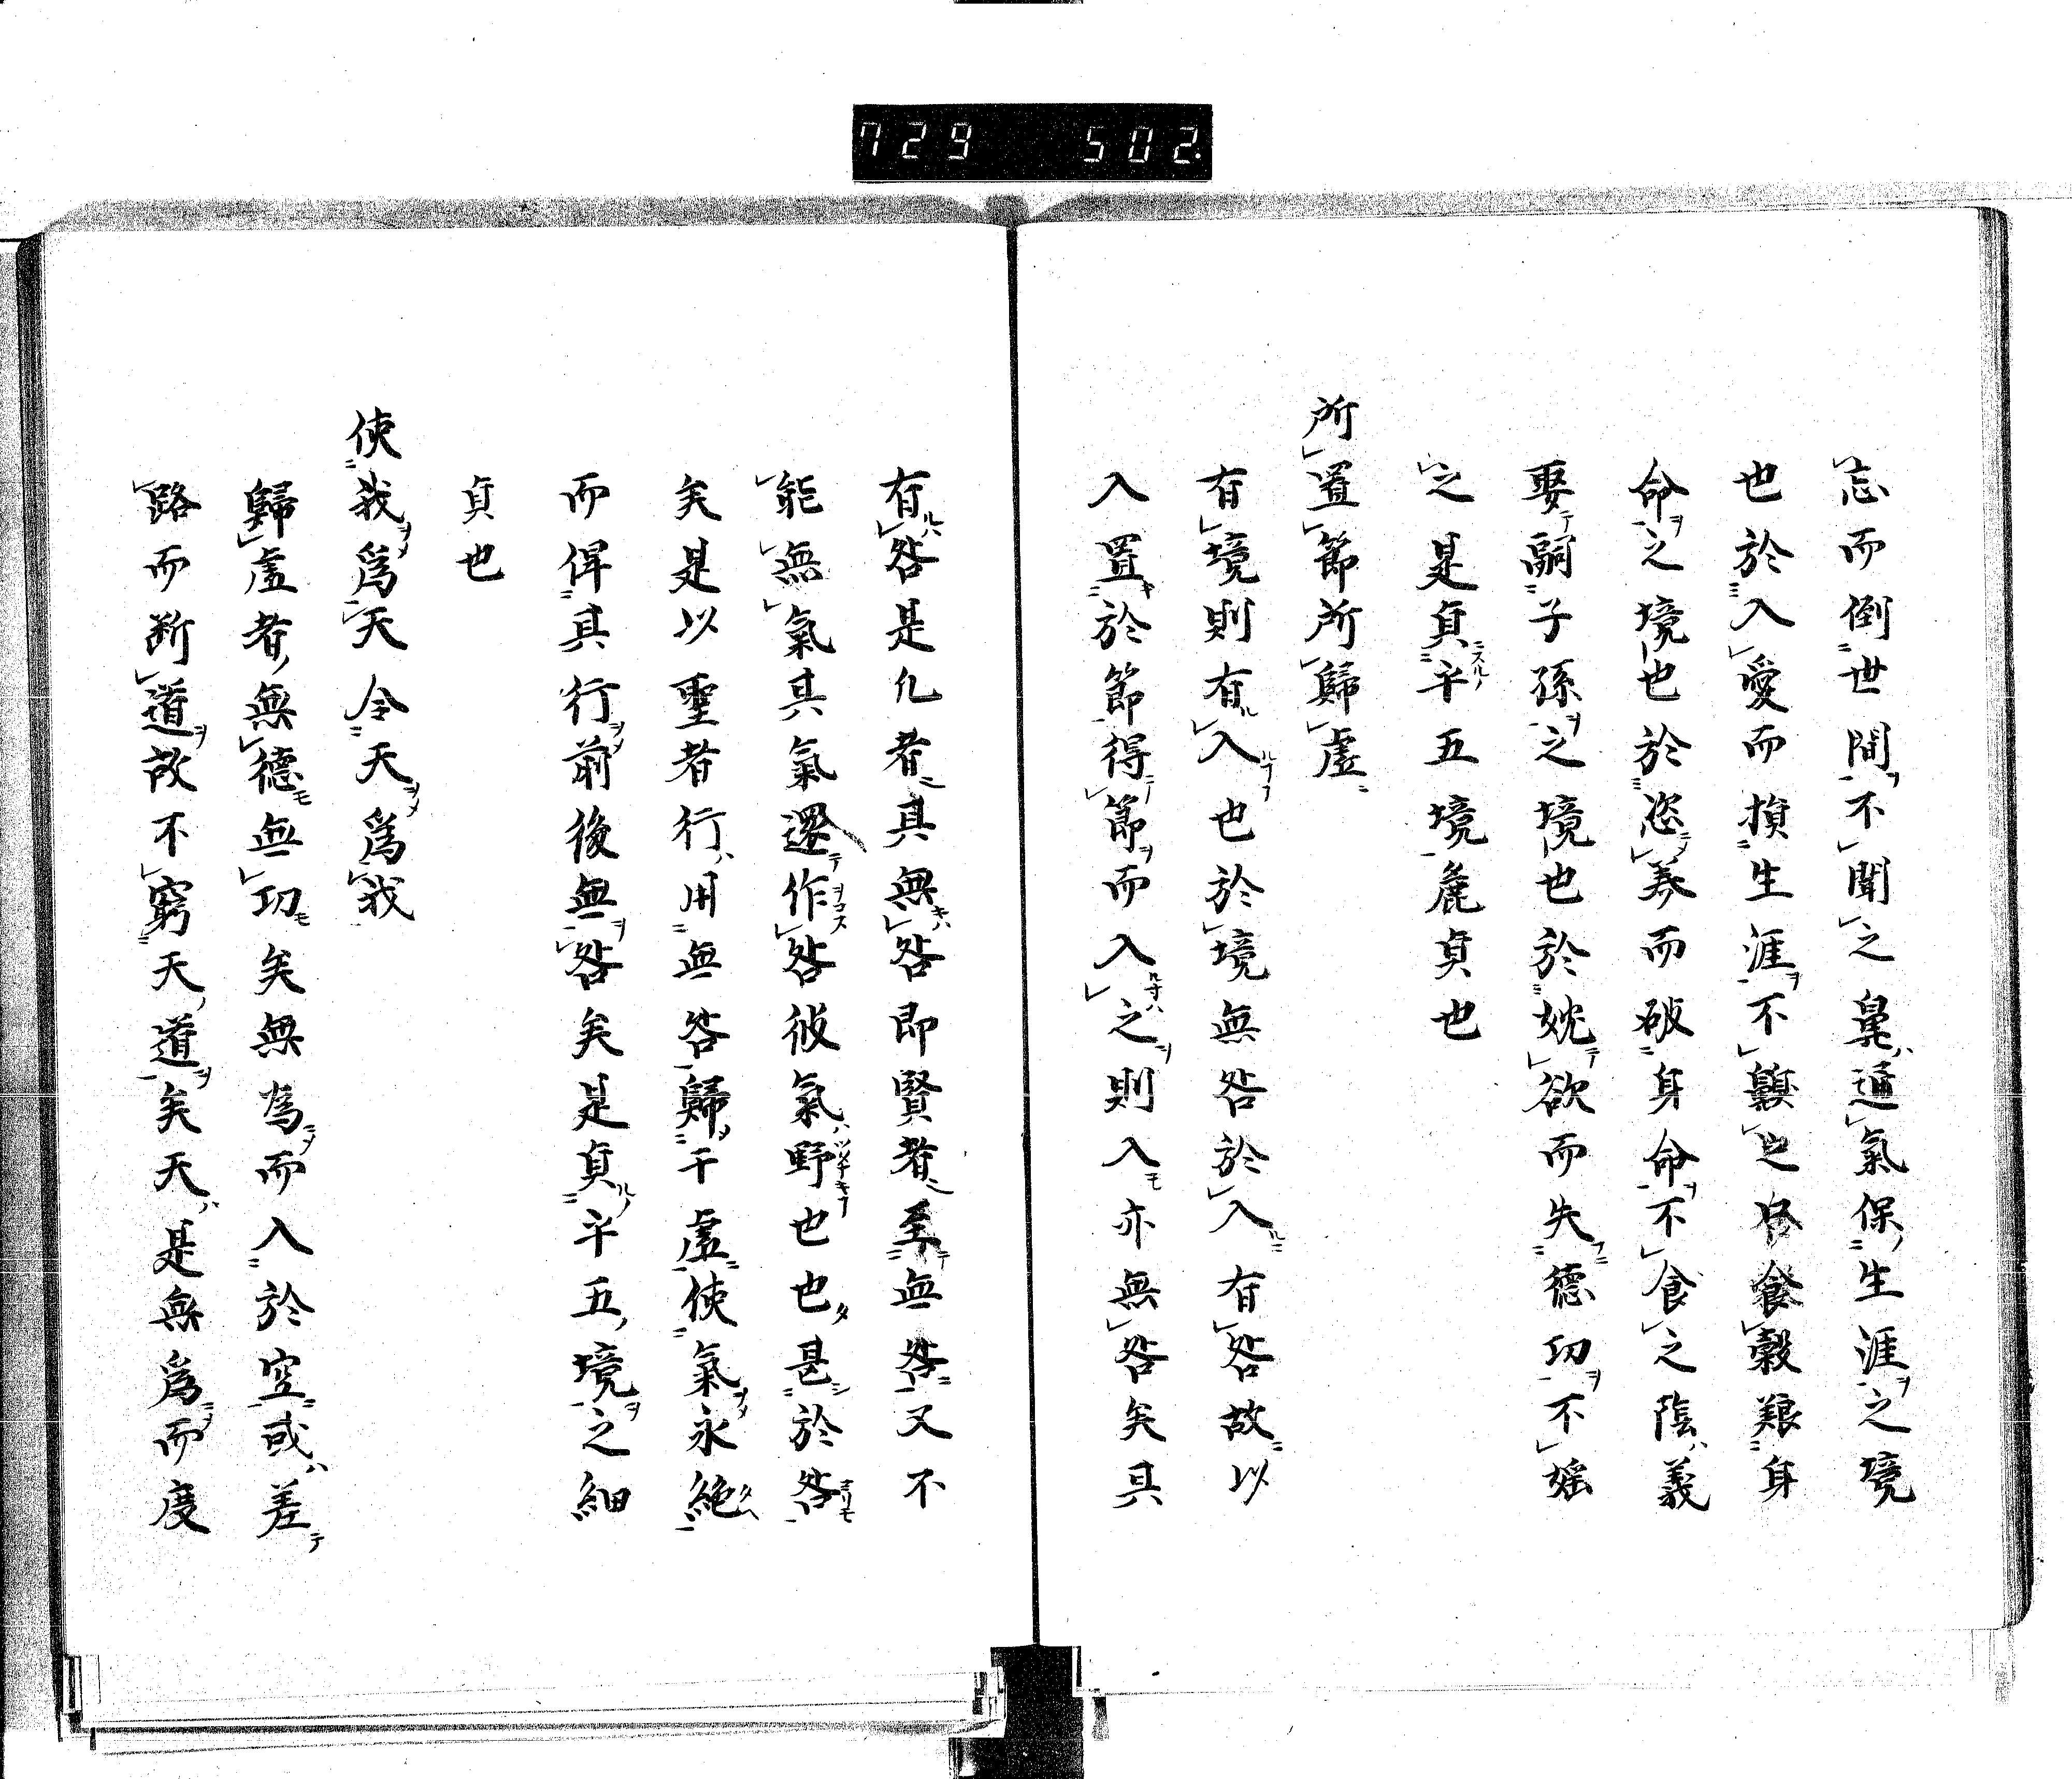 729 502
忘而倒世間不聞之鼻通氣保生涯之境
也於入愛而損生涯不齅之口食穀艱身
命之境也於恣養而破身命不食之陰義
娶嗣子孫之境也於妉欲而失德功不婬
之是貞平五境麁貞也
所置節所歸虛
有境則有入也於境無咎於入有咎故以
入置於節得節而入之則入亦無咎矣其
有咎是凡者其無咎即賢者至無咎又不
能無氣其氣還作咎彼氣野也也甚於咎
矣是以聖者行用無咎歸于虛使氣永絕
而俾其行前後無咎矣是貞平五境之細
貞也
使我爲天令天爲我
歸虛者無德無功矣無為而入於空或差
路而断道故不窮天道矣天是無爲而度